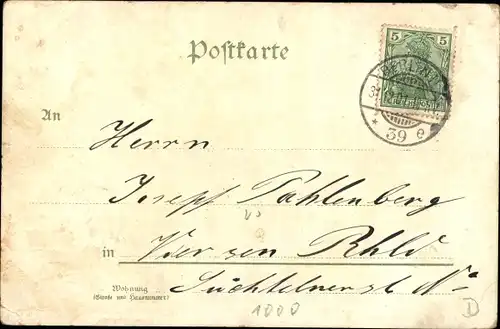 Postkarte
5 5
BERLIN
39 e
An
Herrn
Josef Pahlenberg
in Viersen Rhld
Wohnung
(Straße und Hausnummer)
Süchtelnerst N°
1000
D